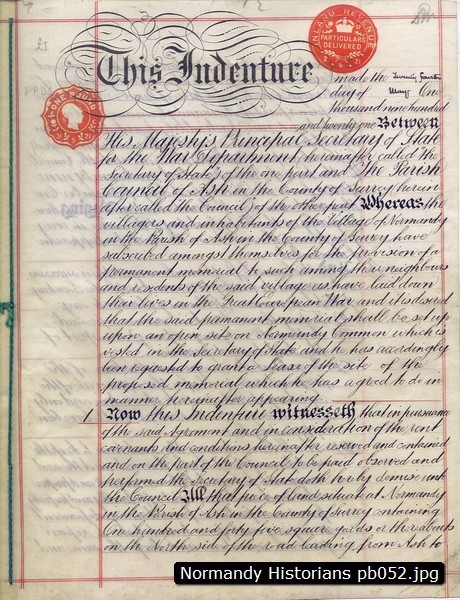 INLAND REVENUE
PARTICULARS
DELIVERED
This Indenture
made the Twenty fourth
day of May One
thousand nine hundred
and twenty one Between
ONE POUND
His Majesty's Principal Secretary of State
for the War Department (hereinafter called the
Secretary of State) of the one part and The Parish
Council of Ash in the County of Surrey herein
after called the Council) of the other part Whereas the
villagers and inhabitants of the Village of Normandy
in the Parish of Ash in the County of Surrey have
subscribed amongst themselves for the provision of a
permanent memorial to such among their neighbours
and residents of the said village as have laid down
their lives in the Great European War and it is desired
that the said permanent memorial shall be set up
upon an open site on Normandy Common which is
vested in the Secretary of State and he has accordingly
been requested to grant a Lease of the site of the
proposed memorial which he has agreed to do in
manner hereinafter appearing
1. Now this Indenture witnesseth that in pursuance
of the said Agreement and in consideration of the rent
covenants and conditions hereinafter reserved and contained
and on the part of the Council to be paid observed and
performed the Secretary of State doth hereby demise unto
the Council All that piece of land situate at Normandy
in the Parish of Ash in the County of Surrey containing
One hundred and forty five square yards or thereabouts
on the North side of the road leading from Ash to
Normandy Historians pb052.jpg